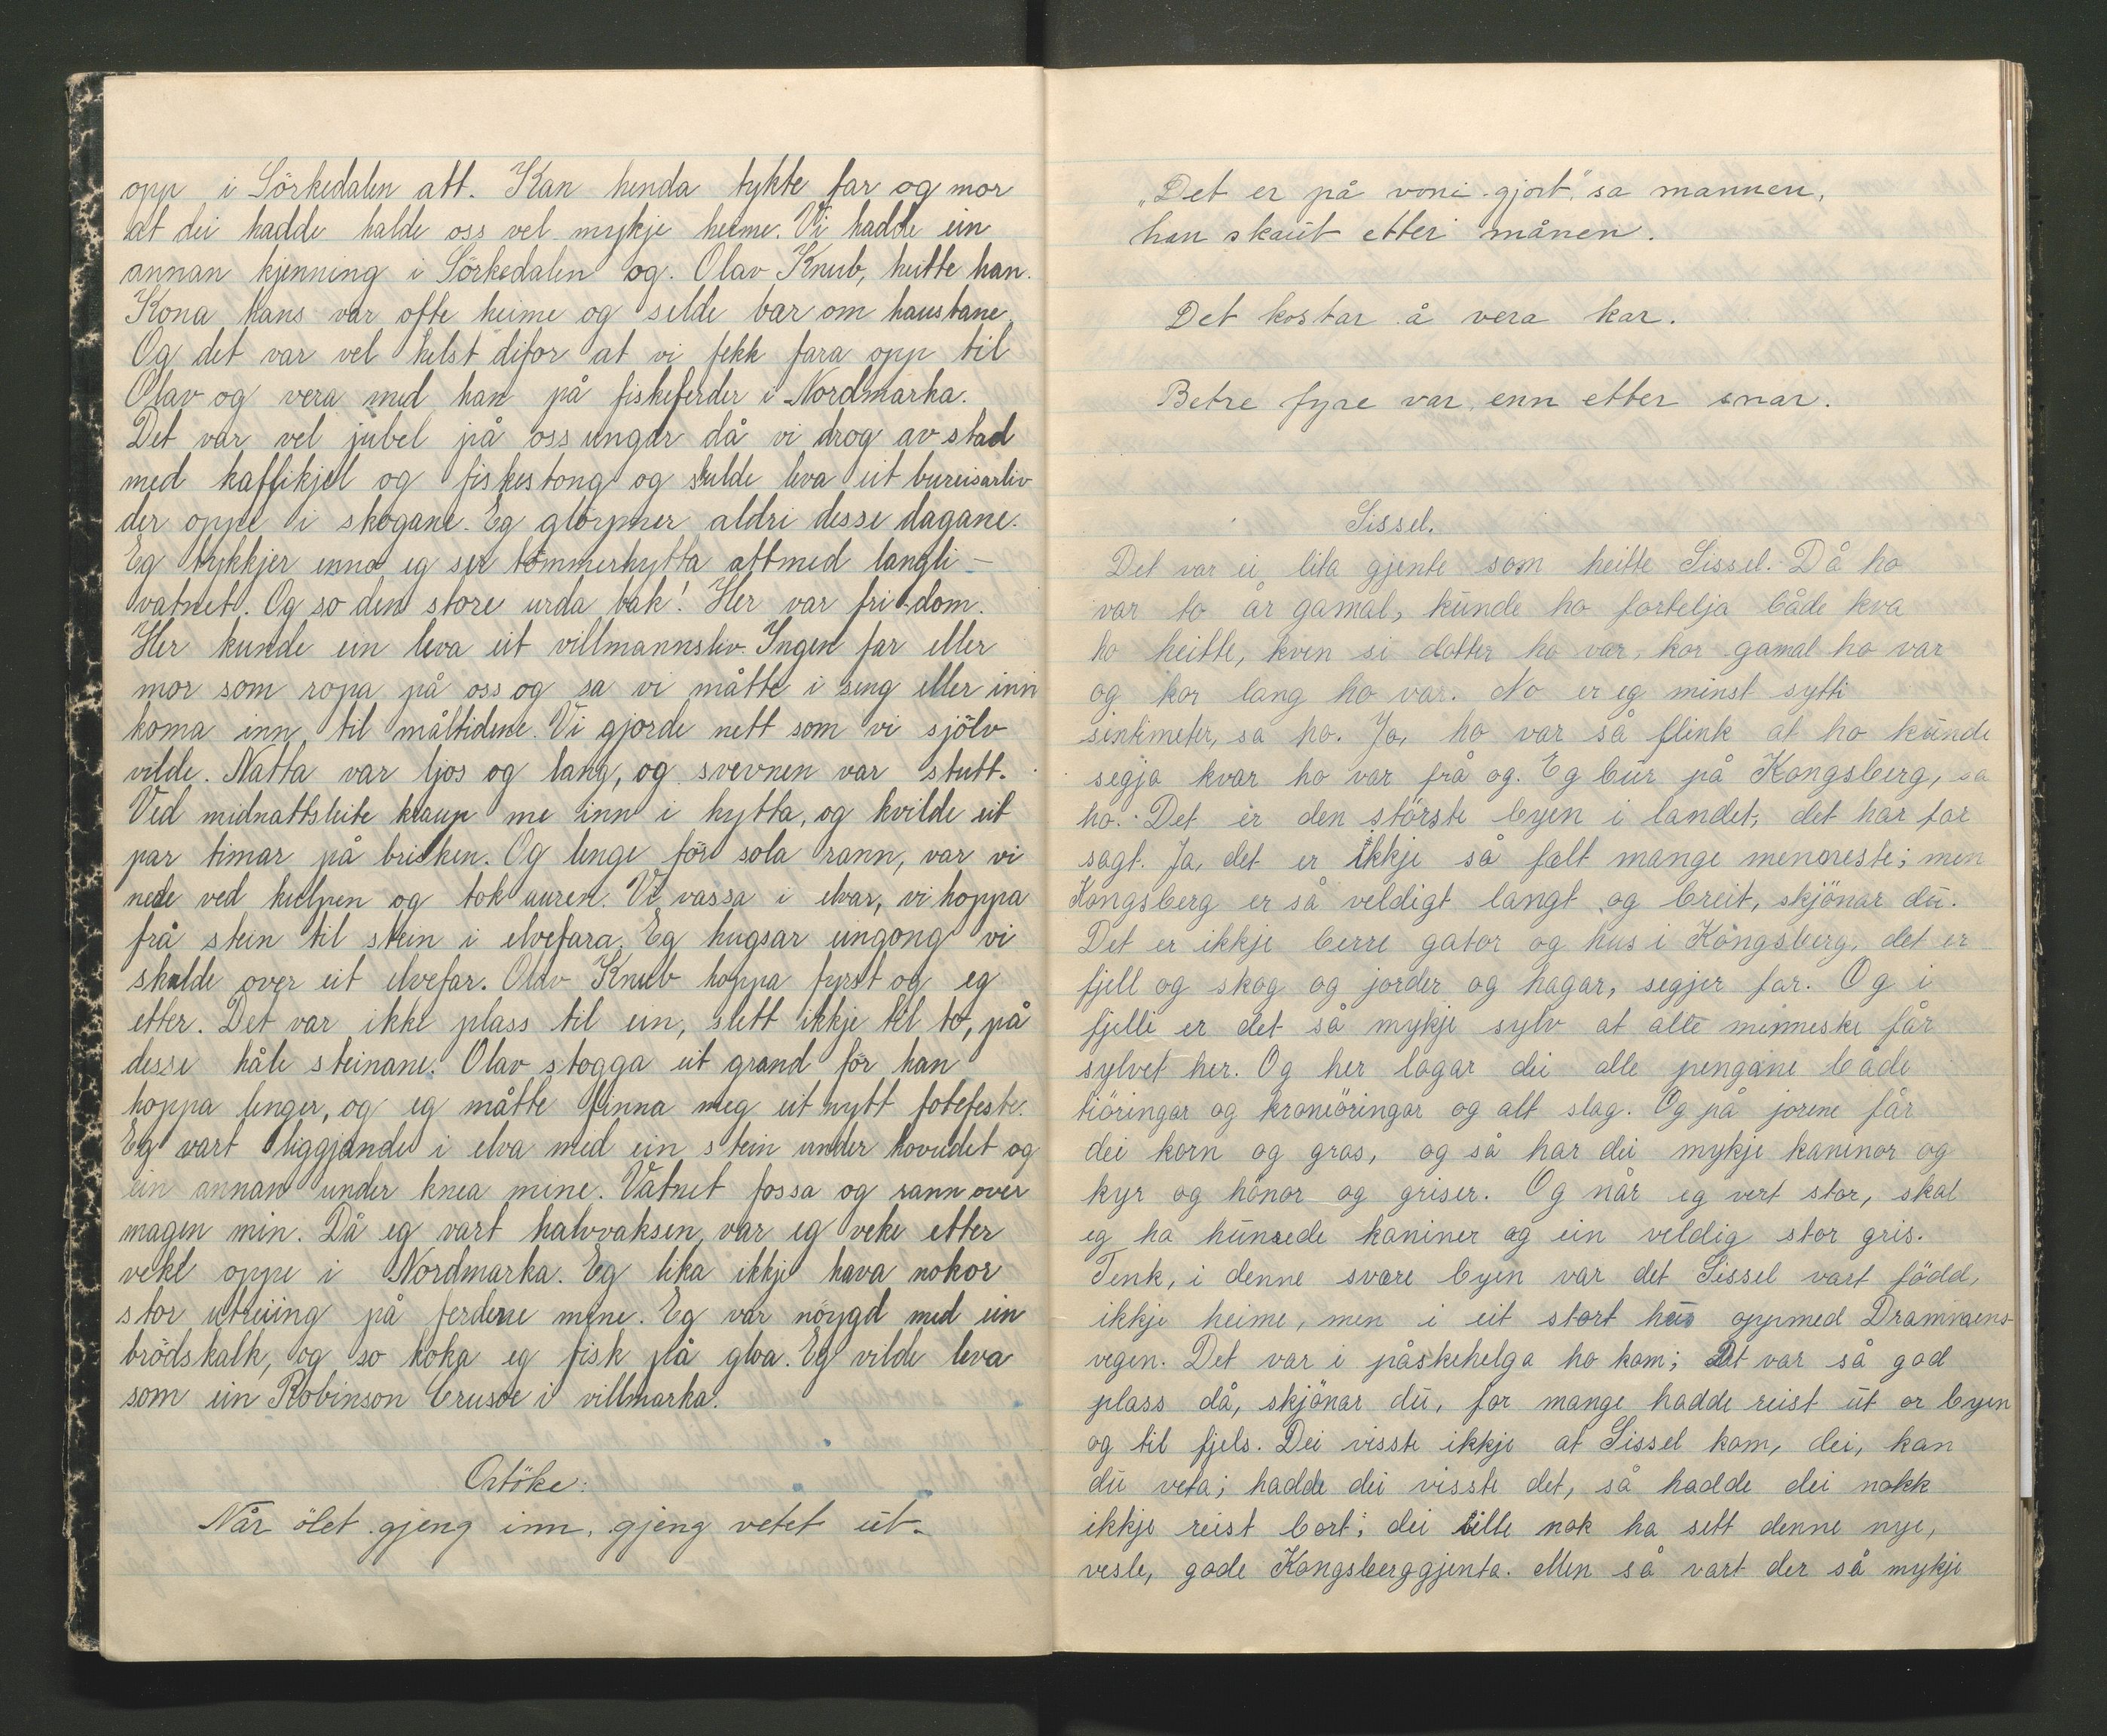 opp i Sörkedalen att. Kan henda tykte far og mor
at dei hadde halde oss vel mykje heime. Vi hadde ein
annan kjenning i Sörkedalen og. Olav Knub, heitte han.
Kona hans var ofte heime og selde bær om haustane.
Og det var vel helst difor at vi fekk fara opp til
Olav og vera med han på fiskeferder i Nordmarka.
Det var vel jubel på oss ungar då vi drog av stad
med kaffikjel og fiskestong og skulde leva eit bureisarliv
der oppe i skogane. Eg glöymer aldri desse dagane.
Eg tykkjer enno eg ser tömmerhytta attmed langli-
vatnet. Og so den store urda bak! Her var fri-dom.
Her kunde ein leva eit villmannsliv. Ingen far eller
mor som ropa på oss og sa vi måtte i seng eller inn
koma inn til måltidene. Vi gjorde nett som vi sjölv
vilde. Natta var ljos og lang, og svevnen var stutt.
Ved midnattsleite kraup me inn i hytta, og kvilde eit
par timar på brisken. Og lenge för sola rann, var vi
nede ved hulpen og tok auren. Vi vassa i elvar, vi hoppa
frå stein til stein i elvefara. Eg hugsar eingong vi
skulde over eit elvefar. Olav Knub hoppa fyrst og eg
etter. Det var ikke plass til ein, slett ikkje til to, på
desse håle steinane. Olav stogga eit grand för han
hoppa lenger, og eg måtte finna meg eit nytt fotefeste.
Eg vart liggjande i elva med ein stein under hovudet og
ein annan under knea mine. Vatnet fossa og rann over
magen min. Då eg vart halvvaksen, var eg veke etter
veke oppe i Nordmarka. Eg lika ikkje hava nokor
stor utreiing på ferdene mine. Eg var nöygd med ein
brödskalk, og so koka eg fisk på gloa. Eg vilde leva
som ein Robinson Crusoe i villmarka.
Ortöke:
Når ölet gjeng inn, gjeng vetet ut.
„Det er på voni gjort" sa mannen,
han skaut etter månen.
Det kostar å vera kar.
Betre fyre var, enn etter snar.
Sissel.
Det var ei lita gjente som heitte Sissel. Då ho
var to år gamal, kunde ho fortelja både kva
ho heitte, kven si dotter ho var, kor gamal ho var
og kor lang ho var. No er eg minst sytti
sentimeter, sa ho. Ja, ho var så flink at ho kunde
segja kvar ho var frå og. Eg bur på Kongsberg, sa
ho. Det er den störste byen i landet, det har far
sagt. Ja, det er ikkje så fælt mange menneske; men
Kongsberg er så veldigt langt og breit, skjönar du.
Det er ikkje berre gator og hus i Kongsberg, det er
fjell og skog og jorder og hagar, segjer far. Og i
fjelle er det så mykje sylv at alle menneske får
sylvet her. Og her lagar dei alle pengane både
tiöringar og kroneöringar og alt slag. Og på jorene får
dei korn og gras, og så har dei mykje kaninor og
kyr og hönor og griser. Og når eg vert stor, skal
eg ha hunrede kaniner og ein veldig stor gris.
Tenk, i denne svære byen var det Sissel vart född,
ikkje heime, men i eit stort hus oppmed Drammens-
vegen. Det var i påskehelga ho kom; Det var så god
plass då, skjönar du, for mange hadde reist ut or byen
og til fjels. Dei visste ikkje at Sissel kom, dei, kan
du veta; hadde dei visste det, så hadde dei nokk
ikkje reist bort; dei ville nok ha sett denne nye,
vesle, gode Kongsberggjenta. Men så vart der så mykje